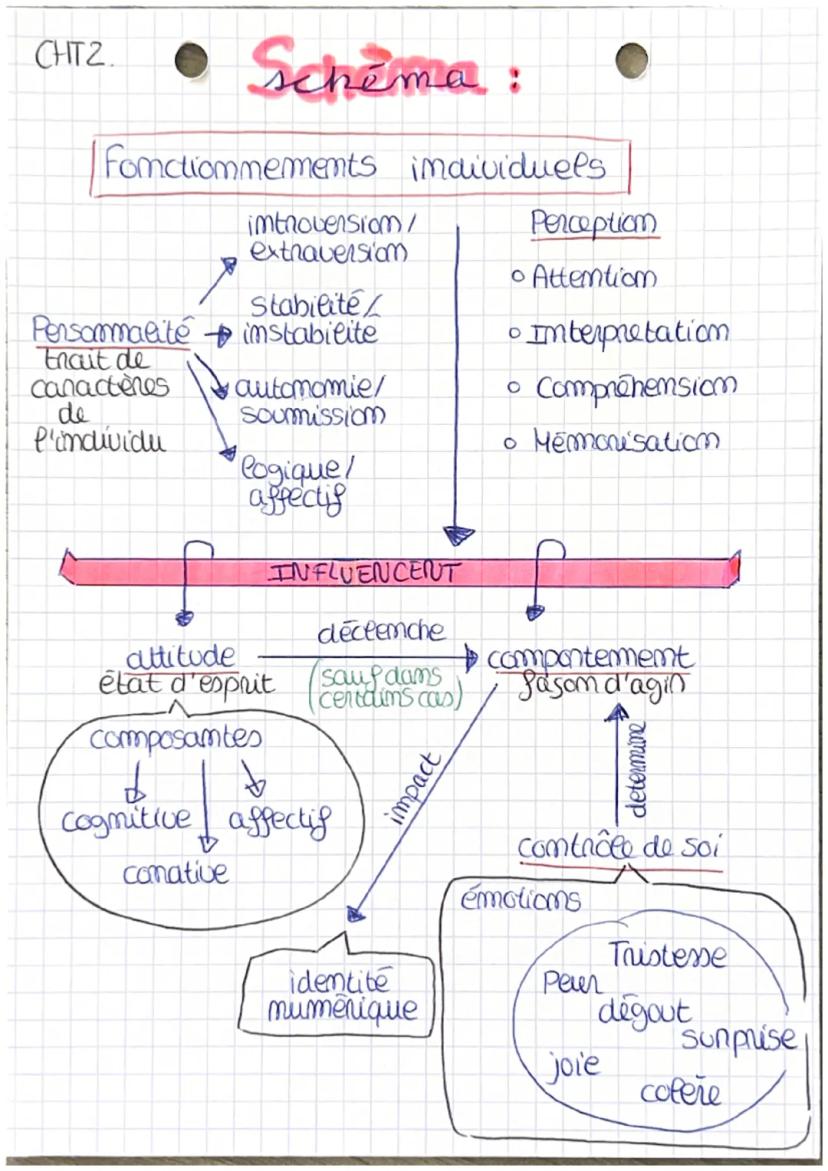 CHT2.
Schéma :
Fonctionnements individuels
introversion/
extraversion
stabilité/
instabilite
autonomie/
soumission
logique/
affectif
Personnalité
trait de
caractères
de
l'individu
Perception
Attention
Interpretation
Compréhension
Mémorisation
INFLUENCENT
attitude
état d'esprit
déclenche
(sauf dans
certains cas)
comportement
fason d'agir
composantes
cognitive
affectif
conative
impact
determine
contrôle de soi
identité
numérique
émotions
Tristesse
Peur
dégout
surprise
joie
colère